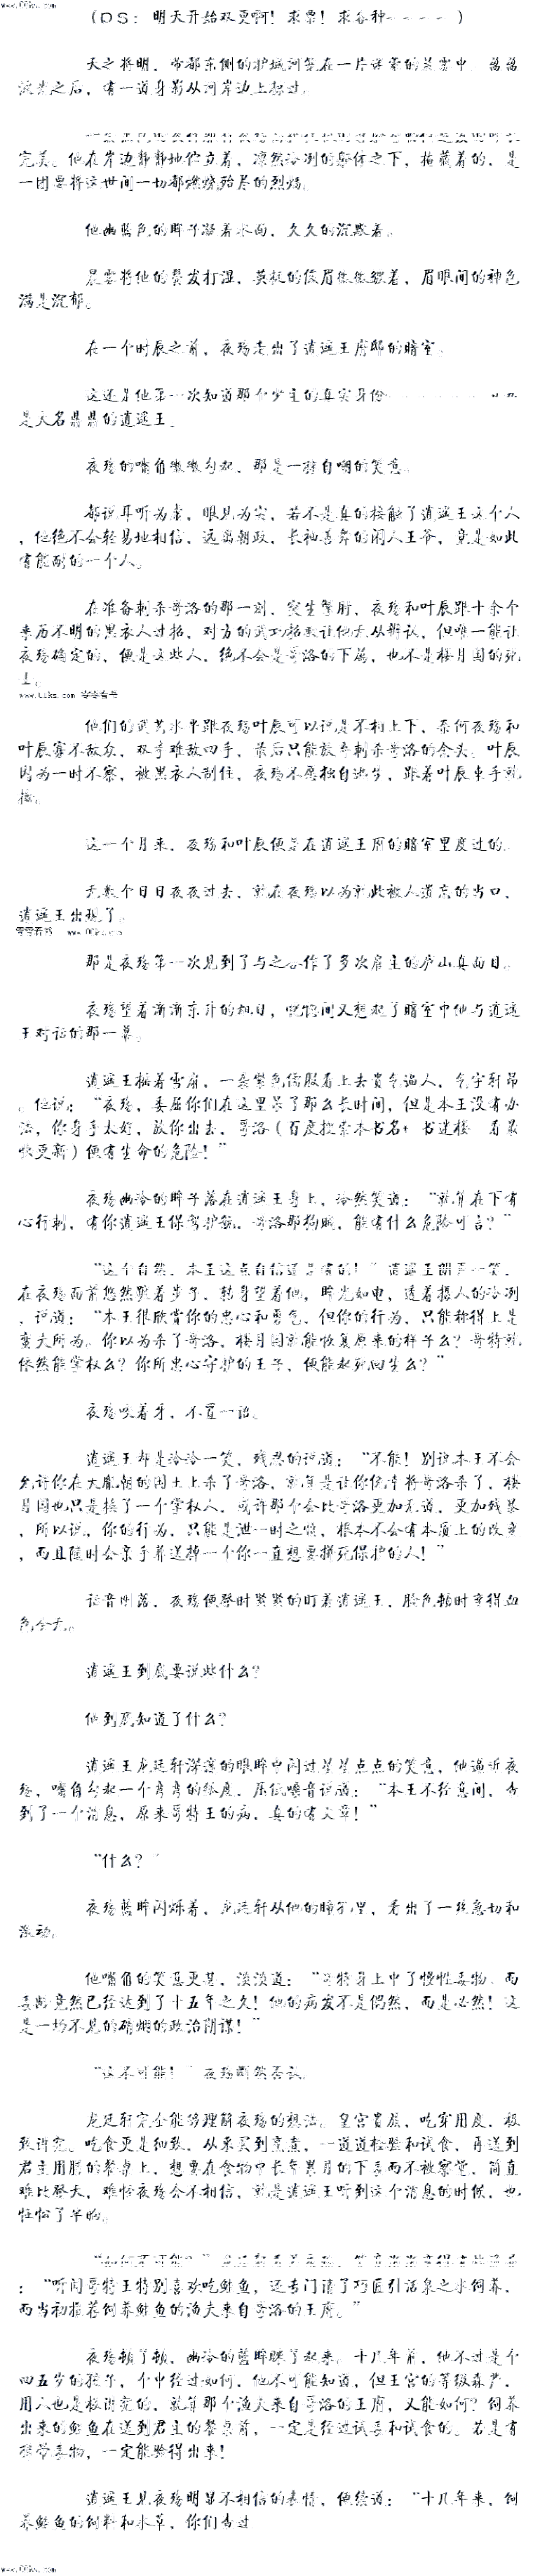 www.00ks.com
（PS：明天开始双更啊！求票！求各种~~~~~）
天之将明，帝都东侧的护城河笼在一片
之后，有一道身影从河岸边上
完美。他在岸边静静地伫立着，凛然冷冽的躯体之下，掩藏着的，是
一团要将这世间一切都燃烧殆尽的烈焰。
他幽蓝色的眸子凝着水面，久久的沉默着。
晨雾将他的鬓发打湿，英挺的俊眉微微皱着，眉眼间的神色
满是沉郁。
在一个时辰之前，夜殇走出了逍遥王府邸的暗室。
这还是他第一次知道那个雇主的真实身份
是大名鼎鼎的逍遥王。
夜殇的嘴角微微勾起，那是一抹自嘲的笑意。
都说耳听为虚，眼见为实，若不是真的接触了逍遥王这个人
，他绝不会轻易地相信，远离朝政，长袖善舞的闲人王爷，竟是如此
有能耐的一个人。
在准备刺杀哥洛的那一刻，突生掣肘，夜殇和叶辰跟十余个
来历不明的黑衣人过招，对方的武功招数让他无从辨认，但唯一能让
夜殇确定的，便是这些人，绝不会是哥洛的下属，也不是楼月国的死
士。
他们的武艺水平跟夜殇叶辰可以说是不相上下，奈何夜殇和
叶辰寡不敌众，双拳难敌四手，最后只能放弃刺杀哥洛的念头。叶辰
因为一时不察，被黑衣人制住，夜殇不愿独自逃生，跟着叶辰束手就
擒。
这一个月来，夜殇和叶辰便是在逍遥王府的暗室里度过的。
无数个日日夜夜过去，就在夜殇以为就此被人遗忘的当口，
逍遥王出现了。
那是夜殇第一次见到了与之合作了多次雇主的庐山真面目。
夜殇望着渐渐东升的旭日，恍惚间又想起了暗室中他与逍遥
王对话的那一幕。
逍遥王摇着雪扇，一袭紫色儒服看上去贵气逼人，气宇轩昂
。他说：“夜殇，委屈你们在这里呆了那么长时间，但是本王没有办
法，你身手太好，放你出去，哥洛（百度搜索本书名+ 书迷楼 看最
快更新）便有生命的危险！”
夜殇幽冷的眸子落在逍遥王身上，冷然笑道：“就算在下有
心行刺，有你逍遥王保驾护航，哥洛那狗贼，能有什么危险可言？”
“这个自然，本王这点自信还是有的！”逍遥王朗声一笑，
在夜殇面前悠然踱着步子，转身望着他，眸光如电，透着摄人的冷冽
，说道：“本王很欣赏你的忠心和勇气，但你的行为，只能称得上是
莽夫所为。你以为杀了哥洛，楼月国就能恢复原来的样子么？哥特就
依然能掌权么？你所忠心守护的王子，便能起死回生么？”
夜殇咬着牙，不置一语。
逍遥王却是冷冷一笑，残忍的说道：“不能！别说本王不会
允许你在大胤朝的国土上杀了哥洛，就算是让你侥幸将哥洛杀了，楼
月国也只是换了一个掌权人，或许那个会比哥洛更加无道，更加残暴
，所以说，你的行为，只能是泄一时之愤，根本不会有本质上的改变
，而且随时会亲手葬送掉一个你一直想要拼死保护的人！”
话音刚落，夜殇便登时紧紧的盯着逍遥王，脸色顿时变得血
色全无。
逍遥王到底要说些什么？
他到底知道了什么？
逍遥王龙廷轩深邃的眼眸中闪过星星点点的笑意，他逼近夜
殇，嘴角勾起一个弯弯的弧度，压低嗓音说道：“本王不经意间，查
到了一个消息，原来哥特王的病，真的有文章！”
“什么？”
夜殇蓝眸闪烁着，龙廷轩从他的瞳孔里，看出了一丝急切和
激动。
他嘴角的笑意更甚，淡淡道：“哥特身上中了慢性毒物，而
毒龄竟然已经达到了十五年之久！他的病发不是偶然，而是必然！这
是一场不见的硝烟的政治阴谋！”
“这不可能！”夜殇断然否认。
龙廷轩完全能够理解夜殇的想法。皇宫贵族，吃穿用度，极
致讲究。吃食更是细致，从采买到烹煮，一道道检验和试食，再送到
君主用膳的餐桌上，想要在食物中长年累月的下毒而不被察觉，简直
难比登天，难怪夜殇会不相信，就是逍遥王听到这个消息的时候，也
怔忪了半晌。
：“听闻哥特王特别喜欢吃鲑鱼，还专门请了巧匠引活泉之水饲养，
而当初推荐饲养鲑鱼的渔夫来自哥洛的王府。”
夜殇顿了顿，幽冷的蓝眸眯了起来，十几年前，他不过是个
四五岁的孩子，个中经过如何，他不可能知道，但王宫的等级森严，
用人也是极讲究的，就算那个渔夫来自哥洛的王府，又能如何？饲养
出来的鲑鱼在送到君主的餐桌前，一定是经过试毒和试食的。若是有
携带毒物，一定能验得出来！
逍遥王见夜殇明显不相信的表情，他续道：“十几年来，饲
养鲑鱼的饲料和水草，你们查过
www.00ks.com